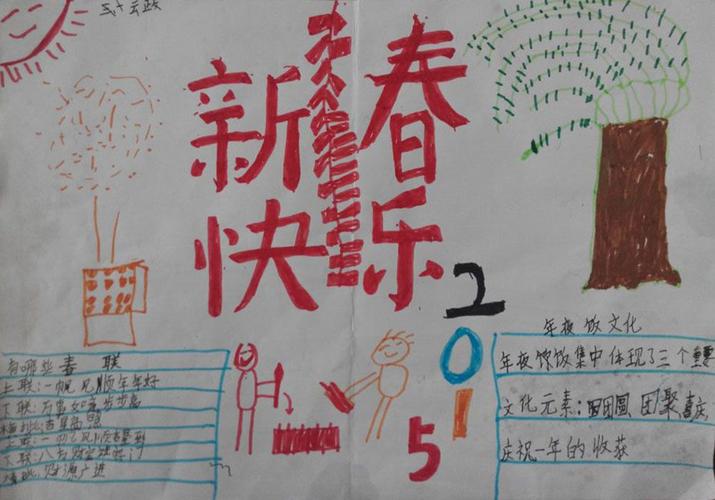 新春
快乐
2
0
1
5
有哪些春联
上联:一帆风顺年年好
下联:万事如意步步高
横批:吉星高照
下联:八方财宝进门
横批:财源广进
年夜饭文化
年夜饭饭集中体现了三个重要
文化元素:团圆 团聚 喜庆
庆祝一年的收获